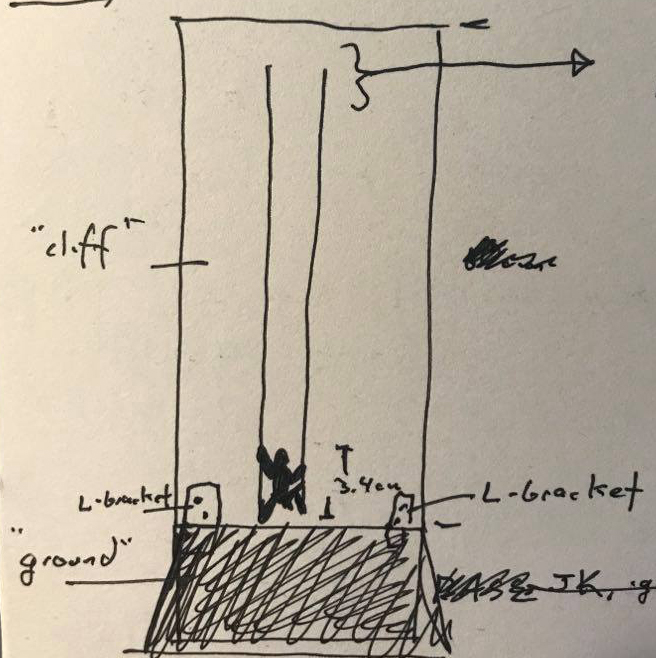 "cliff"
3.4cm
L-bracket
L-bracket
"ground"
JK, ig